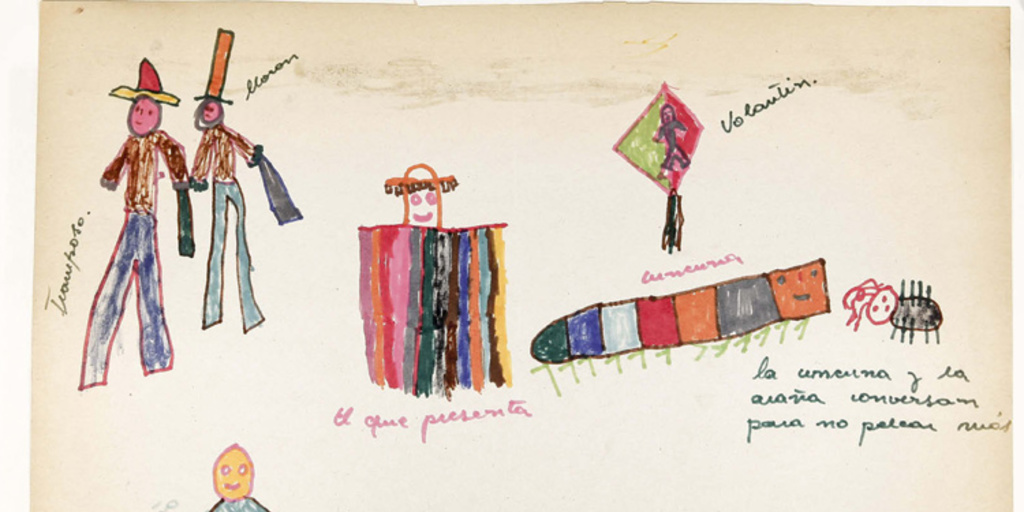 lloron
Volantin.
Tramposo.
cuncuna
la cuncuna y la
araña conversan
para no pelear más
El que presenta